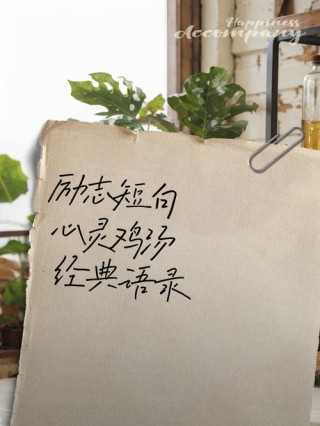 Happiness
Accompany
励志短句
心灵鸡汤
经典语录